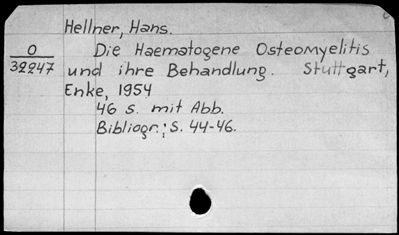 Hellner, Hans.
O
32247
Die Haematogene Osteomyelitis
und ihre Behandlung. Stuttgart,
Enke, 1954
46 s. mit Abb.
Bibliogr.: S. 44-46.